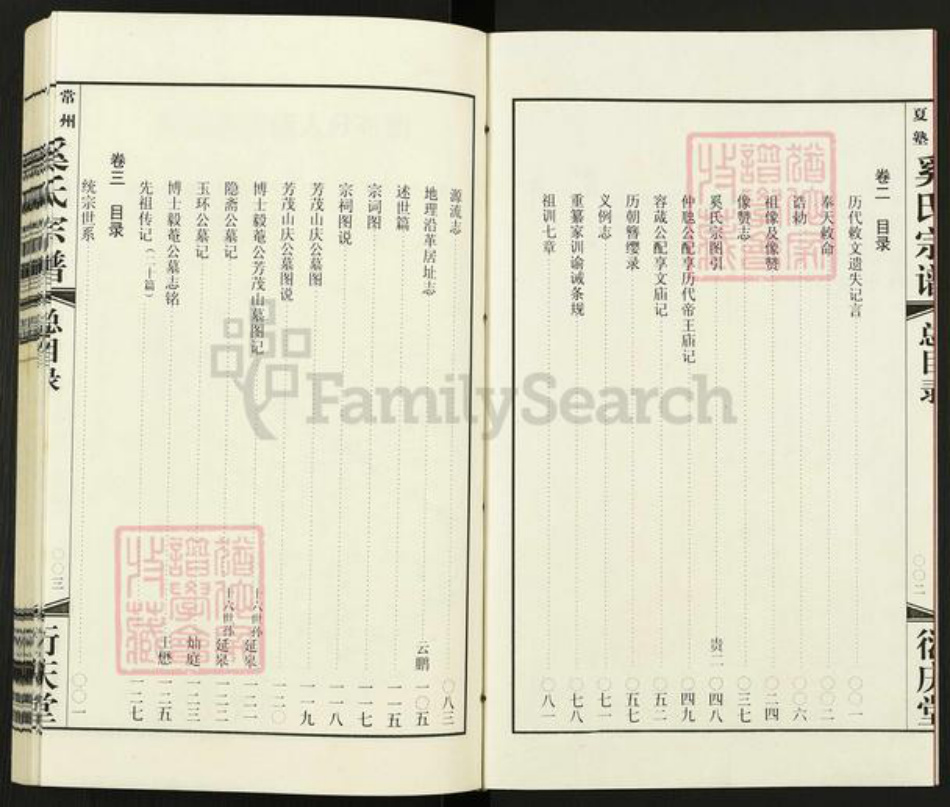 夏塾 奚氏宗谱 总目录 〇〇二 衍庆堂
卷二 目录
历代敕文遗失记言 〇〇一
奉天敕命 〇〇二
诰勅 〇〇六
祖像及像赞 〇二四
像赞志 〇三七
奚氏宗图引 贵二 〇四八
仲聪公配享历代帝王庙记 〇四九
容蒇公配享文庙记 〇五二
历朝簪缨录 〇五七
义例志 〇七一
重纂家训谕诫条规 〇七八
祖训七章 〇八一
源流志 〇八三
地理沿革居址志 云鹏 一〇五
述世篇 一一五
宗词图 一一七
宗祠图说 一一八
芳茂山庆公墓图 一一九
芳茂山庆公墓图说 一二〇
博士毅菴公芳茂山墓图记 十六世孙延皋 一二一
隐斋公墓记 十六世孙延皋 一二二
玉环公墓记 灿庭 一二三
博士毅菴公墓志铭 王懋 一二五
先祖传记（二十篇） 一二七
卷三 目录
统宗世系 〇〇一
常州 奚氏宗谱 总目录 〇〇三 衍庆堂
FamilySearch